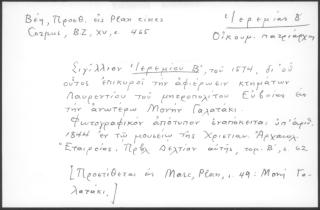 Βέη, Προσθ. εἰς Plan eines
Corpus, BZ, XV, σ. 465
Ἱερεμίας Β΄
Οἰκουμ. πατριάρχης
Σιγίλλιον Ἱερεμίου Β΄, τοῦ 1574, δι' οὗ
οὗτος ἐπικυροῖ τὴν ἀφιέρωσιν κτημάτων
Λαυρεντίου τοῦ μητροπολίτου Εὐβοίας εἰς
τὴν ἀνωτέρω Μονὴν Γαλατάκι.
Φωτογραφικὸν ἀπότυπον ἐναπόκειται ὑπ' ἀριθ.
1844 ἐν τῷ μουσείῳ τῆς Χριστιαν. Ἀρχαιολ.
Ἑταιρείας. Πρβλ Δελτίον αὐτῆς, τομ. Β΄, σ. 62
[Προστίθεται εἰς Marc, Plan, σ. 49: Μονὴ Γα-
λατάκι.]